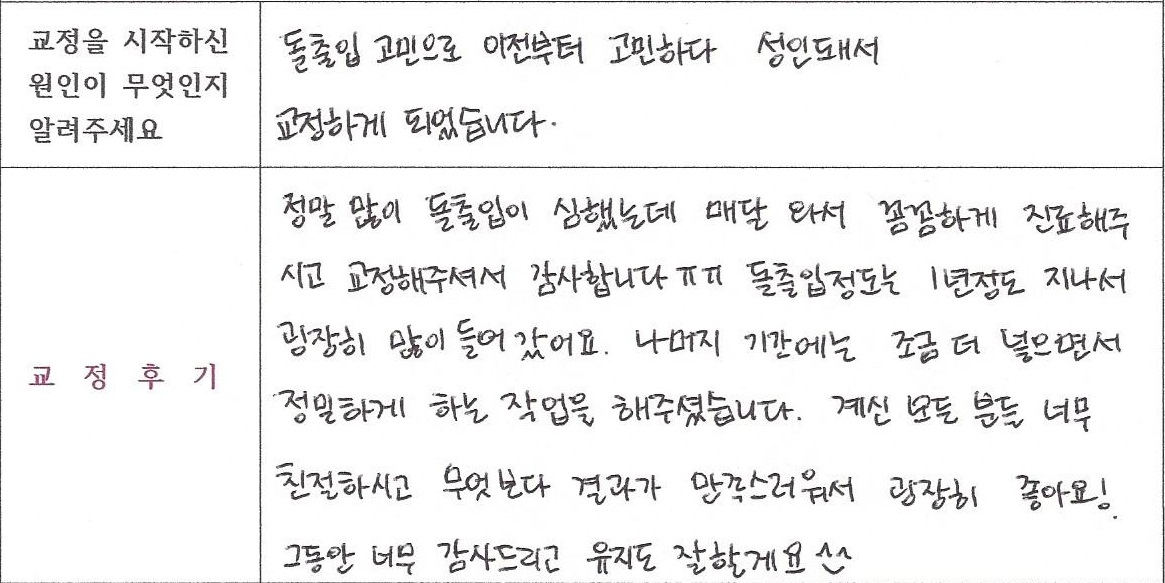 교정을 시작하신
원인이 무엇인지
알려주세요
돌출입 고민으로 이전부터 고민하다 성인돼서
교정하게 되었습니다.
교정후기
정말 많이 돌출입이 심했는데 매달 와서 꼼꼼하게 진료해주
시고 교정해주셔서 감사합니다ㅠㅠ 돌출입정도는 1년정도 지나서
굉장히 많이 들어갔어요. 나머지 기간에는 조금 더 넣으면서
정밀하게 하는 작업을 해주셨습니다. 계신 모든 분들 너무
친절하시고 무엇보다 결과가 만족스러워서 굉장히 좋아요!
그동안 너무 감사드리고 유지도 잘할게요^^